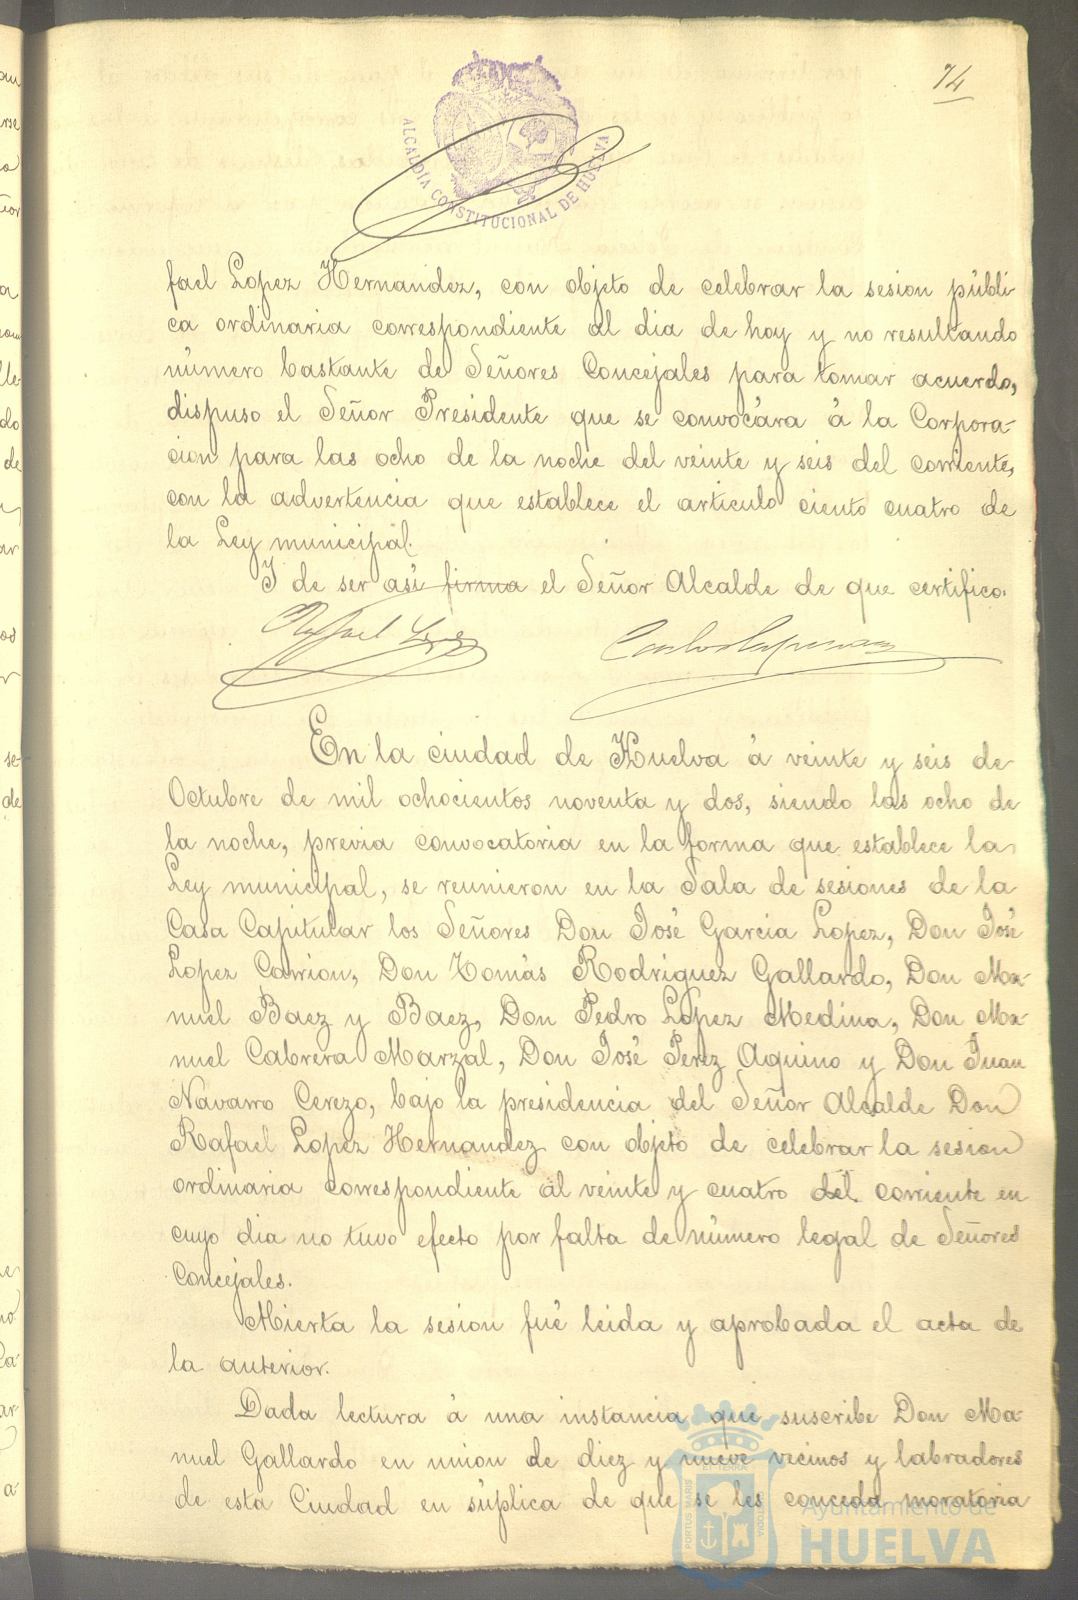 74
ALCALDÍA CONSTITUCIONAL DE HUELVA
fael Lopez Hernandez, con objeto de celebrar la sesion públi-
ca ordinaria correspondiente al dia de hoy y no resultando
número bastante de Señores Concejales para tomar acuerdo,
dispuso el Señor Presidente que se convocára á la Corpora-
cion para las ocho de la noche del veinte y seis del corriente,
con la advertencia que establece el articulo ciento cuatro de
la Ley municipal.
I de ser así firma el Señor Alcalde de que certifico.
Rafael Lopez
En la ciudad de Huelva á veinte y seis de
Octubre de mil ochocientos noventa y dos, siendo las ocho de
la noche, previa convocatoria en la forma que establece la
Ley municipal, se reunieron en la Sala de sesiones de la
Casa Capitular los Señores Don José Garcia Lopez, Don José
Lopez Carrion, Don Tomás Rodriguez Gallardo, Don Ma-
nuel Baez y Baez, Don Pedro López Medina, Don Ma-
nuel Cabrera Marzal, Don José Perez Aquino y Don Juan
Navarro Cerezo, bajo la presidencia del Señor Alcalde Don
Rafael Lopez Hernandez con objeto de celebrar la sesion
ordinaria correspondiente al veinte y cuatro del corriente en
cuyo dia no tuvo efecto por falta de número legal de Señores
Concejales.
Abierta la sesion fué leida y aprobada el acta de
la anterior.
Dada lectura á una instancia que suscribe Don Ma-
nuel Gallardo en union de diez y nueve vecinos y labradores
de esta Ciudad en súplica de que se les conceda moratoria
PORTUS MARIS ET TERRÆ CUSTODIA
Ayuntamiento de
HUELVA